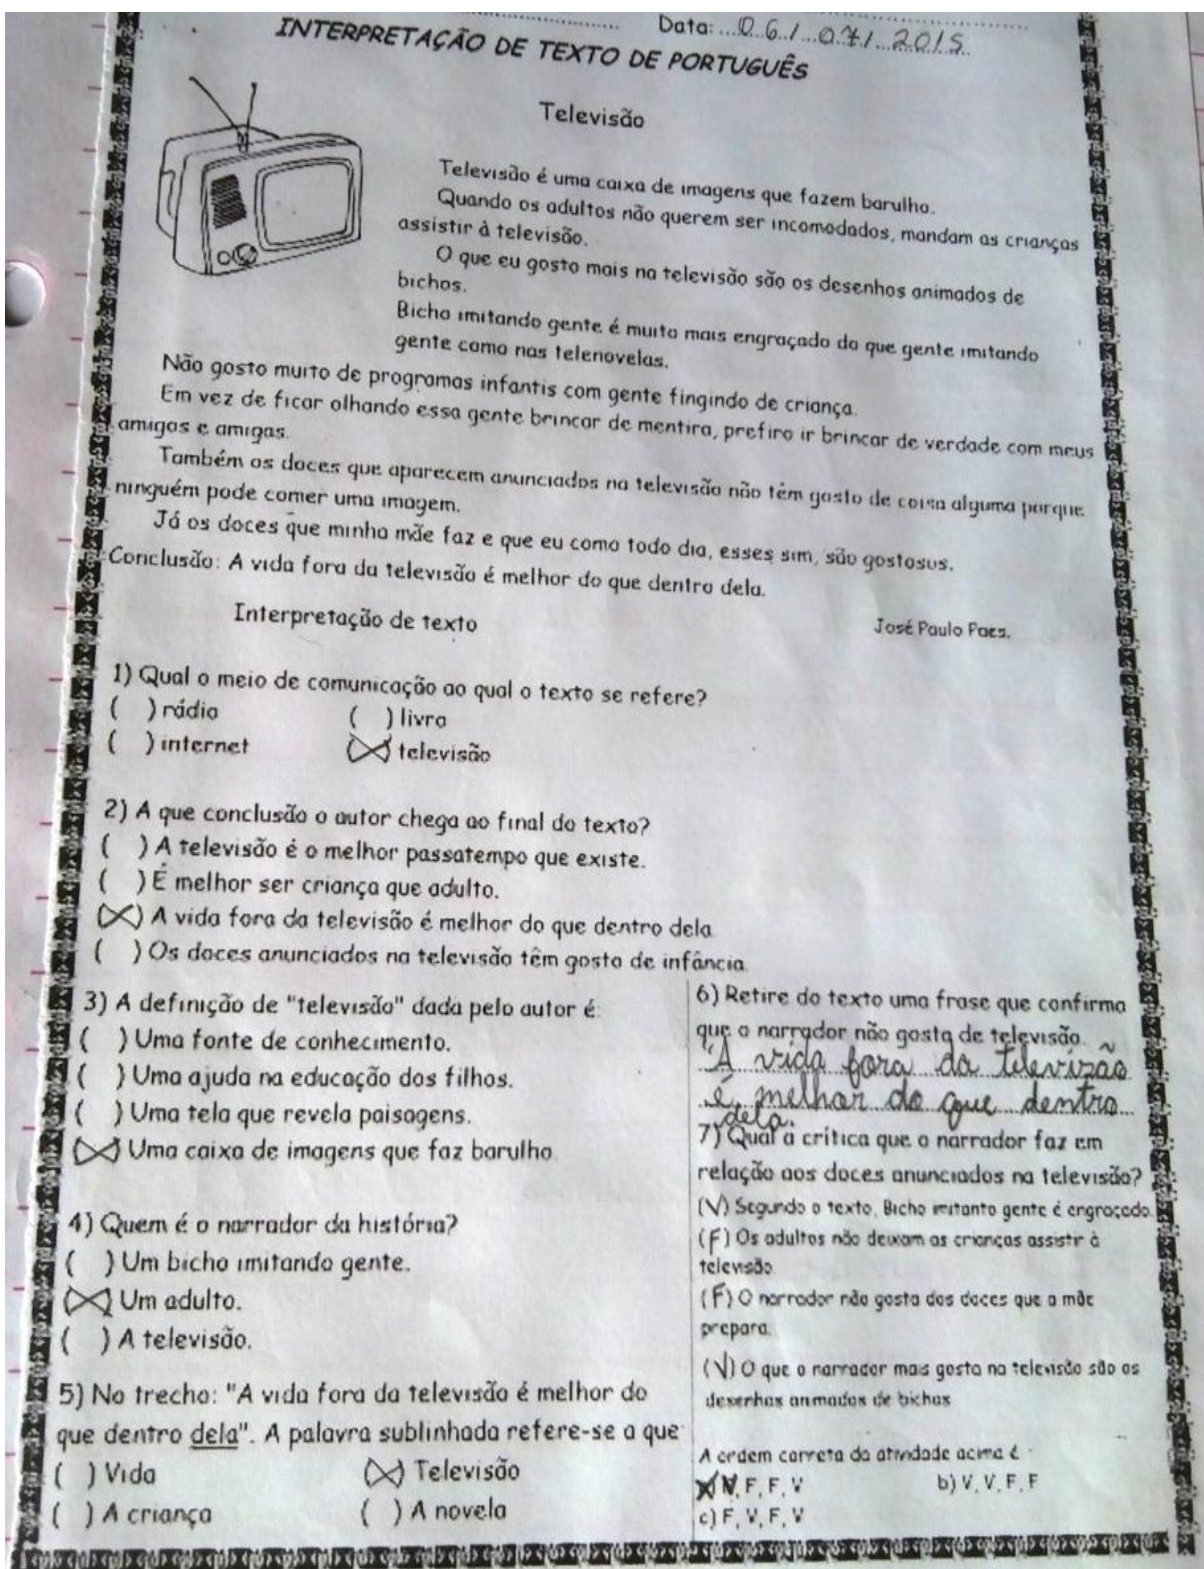 Data: 06/07/2015
INTERPRETAÇÃO DE TEXTO DE PORTUGUÊS
Televisão
Televisão é uma caixa de imagens que fazem barulho.
Quando os adultos não querem ser incomodados, mandam as crianças
assistir à televisão.
O que eu gosto mais na televisão são os desenhos animados de
bichos.
Bicho imitando gente é muito mais engraçado do que gente imitando
gente como nas telenovelas.
Não gosto muito de programas infantis com gente fingindo de criança.
Em vez de ficar olhando essa gente brincar de mentira, prefiro ir brincar de verdade com meus
amigos e amigas.
Também os doces que aparecem anunciados na televisão não têm gosto de coisa alguma porque
ninguém pode comer uma imagem.
Já os doces que minha mãe faz e que eu como todo dia, esses sim, são gostosos.
Conclusão: A vida fora da televisão é melhor do que dentro dela.
José Paulo Paes.
Interpretação de texto
1) Qual o meio de comunicação ao qual o texto se refere?
( ) rádio ( ) livro
( ) internet (X) televisão
2) A que conclusão o autor chega ao final do texto?
( ) A televisão é o melhor passatempo que existe.
( ) É melhor ser criança que adulto.
(X) A vida fora da televisão é melhor do que dentro dela
( ) Os doces anunciados na televisão têm gosto de infância.
3) A definição de "televisão" dada pelo autor é:
( ) Uma fonte de conhecimento.
( ) Uma ajuda na educação dos filhos.
( ) Uma tela que revela paisagens.
(X) Uma caixa de imagens que faz barulho.
4) Quem é o narrador da história?
( ) Um bicho imitando gente.
(X) Um adulto.
( ) A televisão.
5) No trecho: "A vida fora da televisão é melhor do
que dentro dela". A palavra sublinhada refere-se a que
( ) Vida (X) Televisão
( ) A criança ( ) A novela
6) Retire do texto uma frase que confirma
que o narrador não gosta de televisão.
"A vida fora da televizão
é melhor do que dentro
dela.
7) Qual a crítica que o narrador faz em
relação aos doces anunciados na televisão?
(V) Segundo o texto, Bicho imitanto gente é engraçado.
(F) Os adultos não deixam as crianças assistir à
televisão
(F) O narrador não gosta dos doces que a mãe
prepara.
(V) O que o narrador mais gosta na televisão são os
desenhos animados de bichos
A ordem correta da atividade acima é
X V, F, F, V b) V, V, F, F
c) F, V, F, V